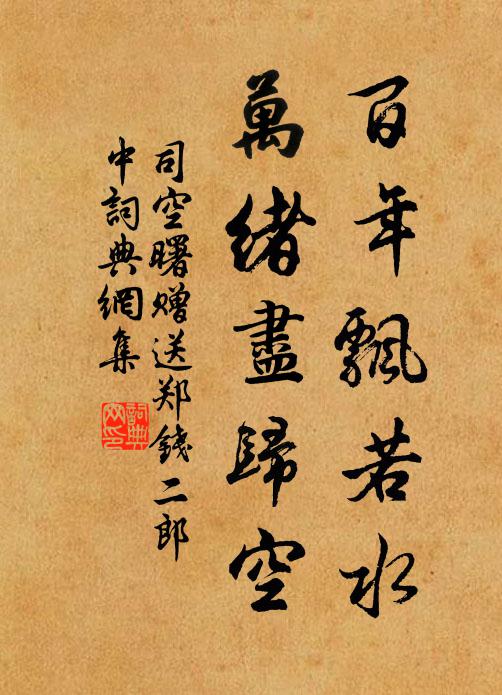 百年飄若水
萬緒盡歸空
司空曙赠送郑錢二郎
中詞典網集
詞典
网印